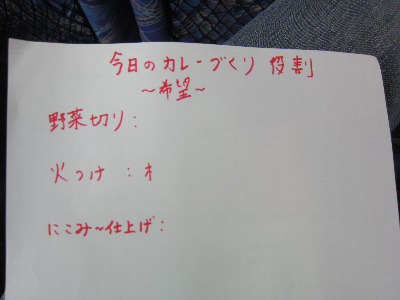 今日のカレーづくり 役割
～希望～
野菜切り:
火つけ : オ
にこみ～仕上げ: